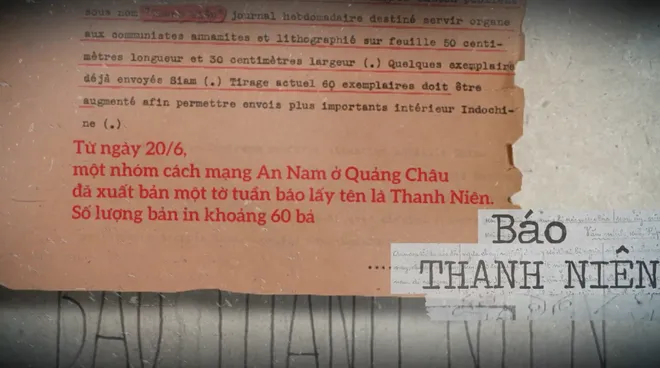 sous nom journal hebdomadaire destiné servir organe
aux communistes annamites et lithographié sur feuille 50 centi-
mètres longueur et 30 centimètres largeur (.) Quelques exemplaire
déjà envoyés Siam (.) Tirage actuel 60 exemplaires doit être
augmenté afin permettre envois plus importants intérieur Indochi-
ne (.)
Từ ngày 20/6,
một nhóm cách mạng An Nam ở Quảng Châu
đã xuất bản một tờ tuần báo lấy tên là Thanh Niên.
Số lượng bản in khoảng 60 bả
Báo
THANH NIÊN
BÁO THANH NIÊN